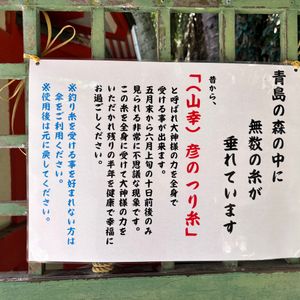 青島の森の中に
無数の糸が
垂れています
昔から、
「(山幸)彦のつり糸」
と呼ばれ大神様の力を全身で
受ける事が出来ます。
五月末から六月上旬の十日前後のみ
見られる非常に不思議な現象です。
この糸を全身に受けて大神様の力を
いただかれ残りの半年を健康で幸福に
お過ごしください。
※釣り糸を受ける事を好まれない方は
傘をご利用ください。
※使用後は元に戻してください。